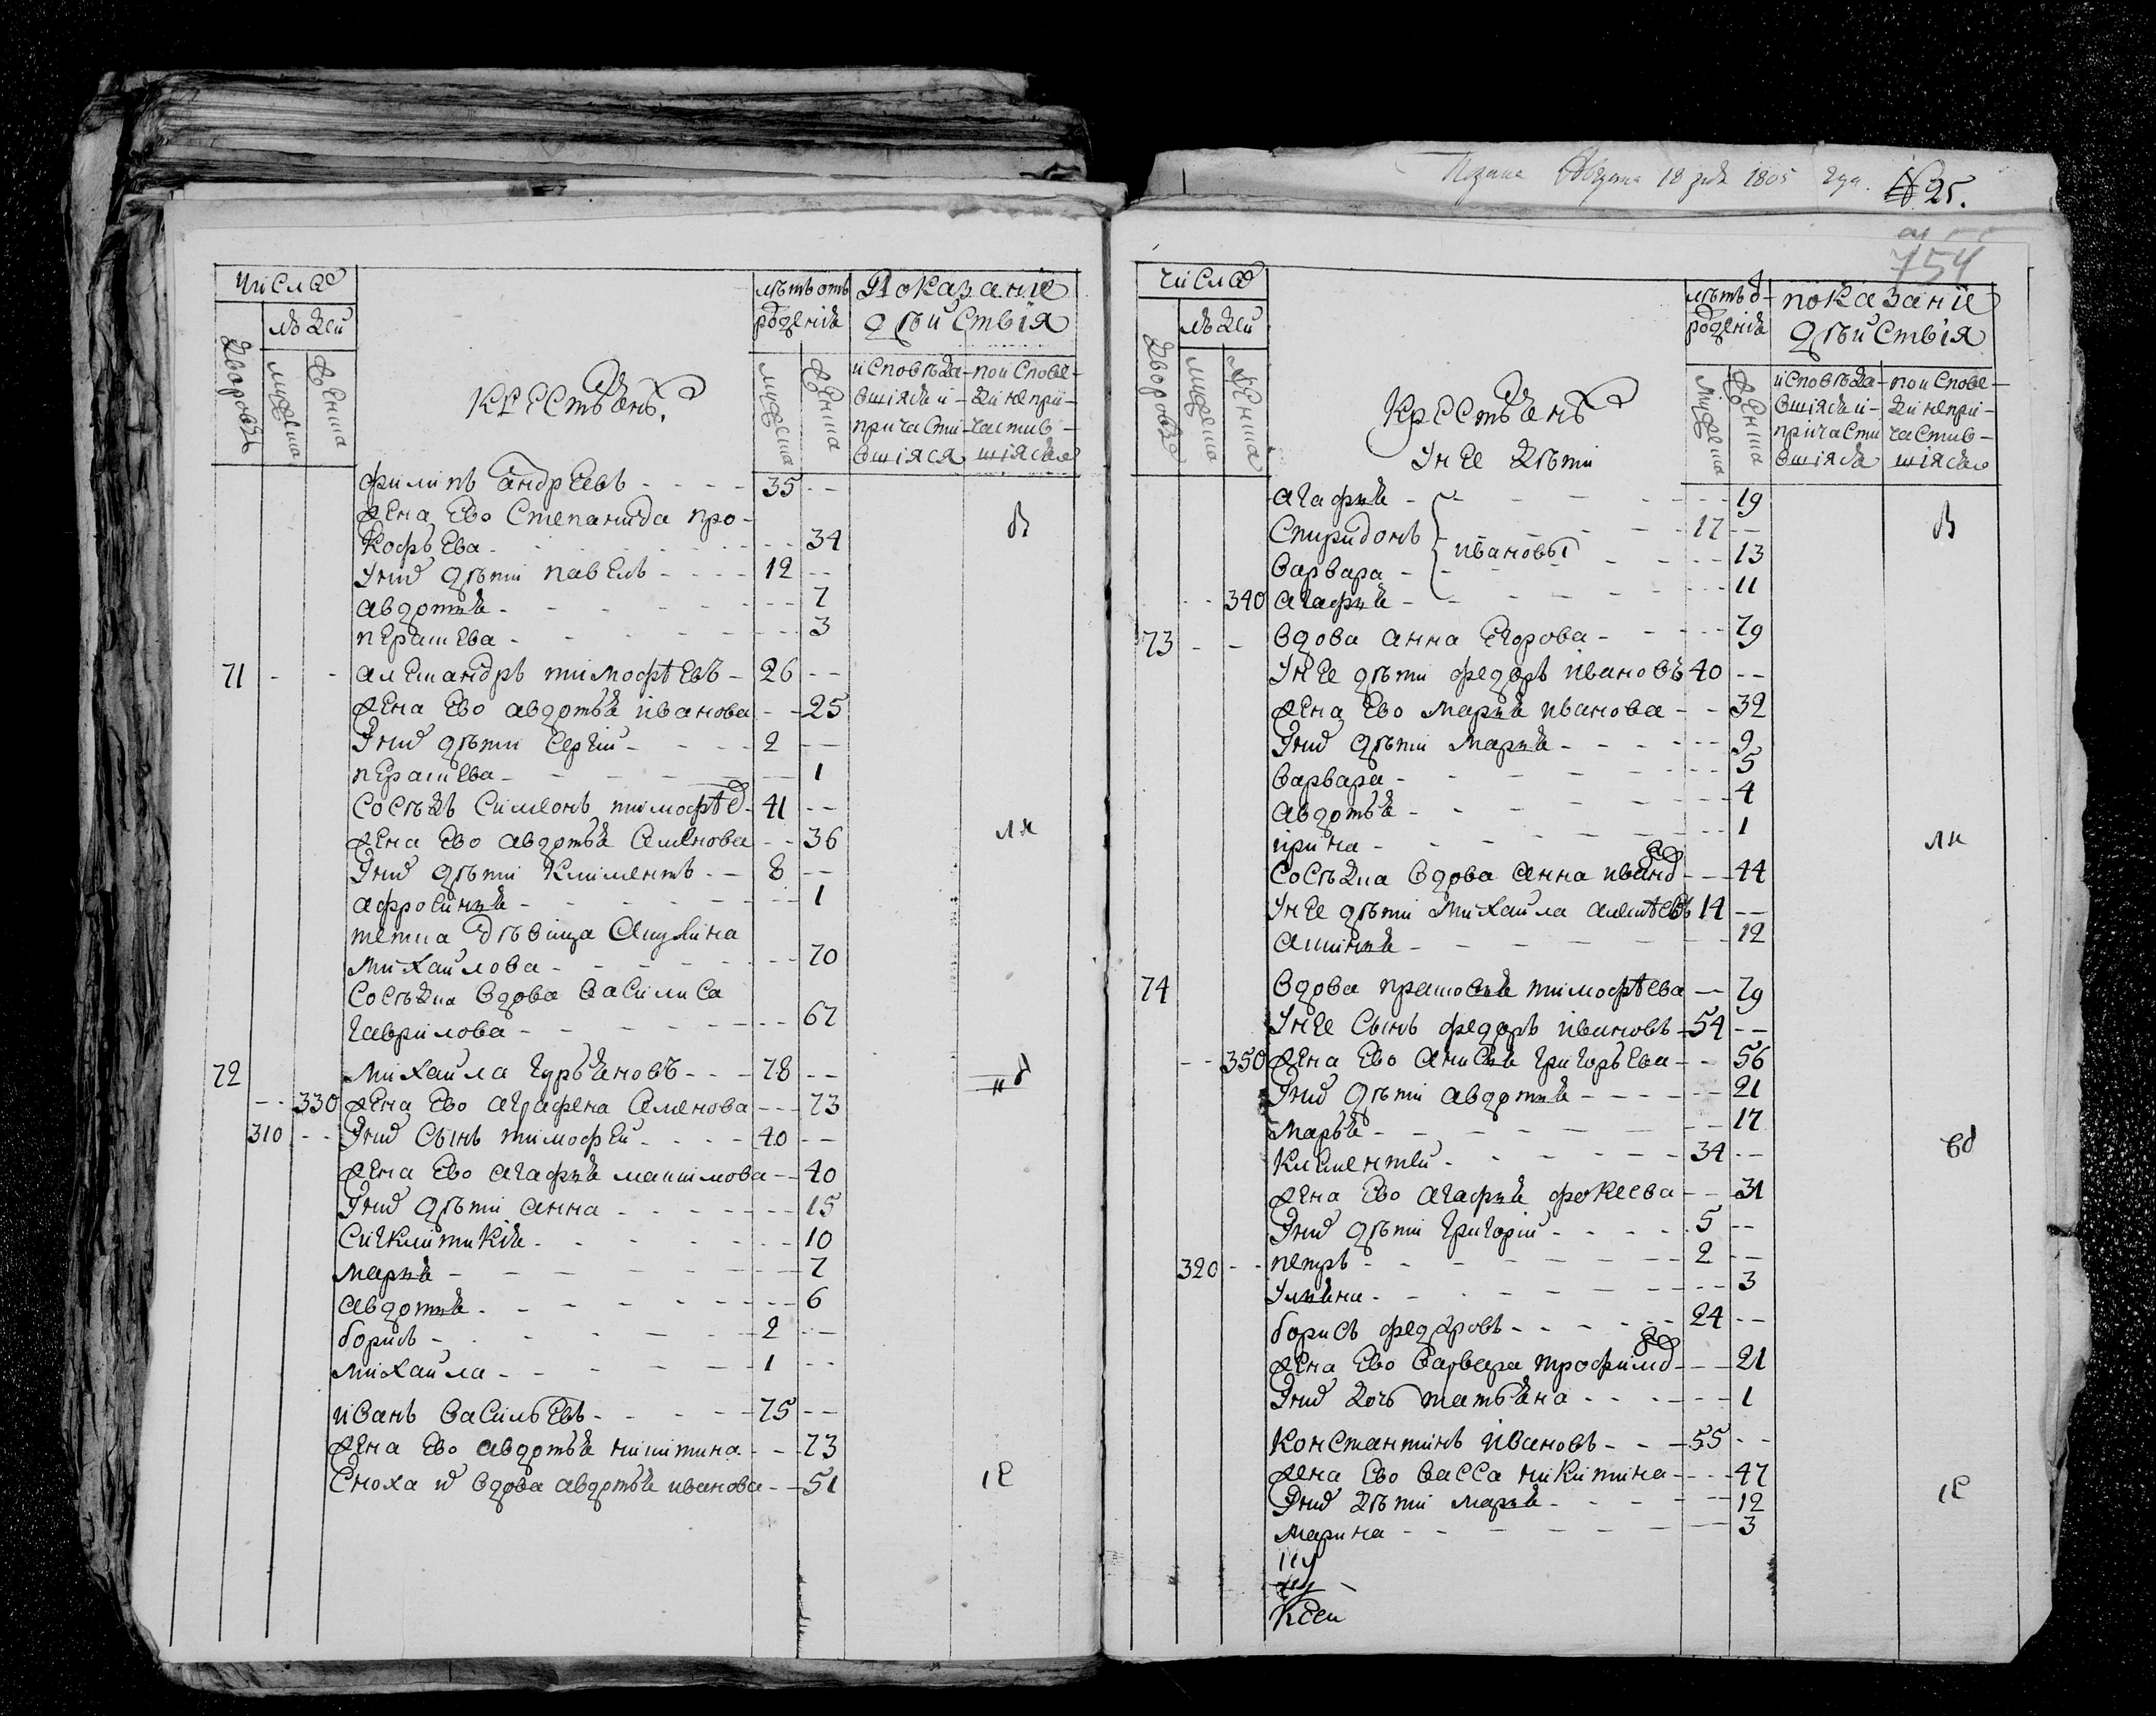 Подана Августа 18 дня 1805 года № 25.
754
Числа
людей
Дворовъ
мужеска
женска
Крестьянъ.
лѣтъ отъ рожденія
мужеска
женска
Показаніе дѣйствія
исповѣдавшіяся и причастившіяся
по исповеди не причастившіяся
Филипъ Андреевъ - 35
Жена Ево Степанида Про-
кофьева - 34
У них дѣти Павелъ - 12
Авдотия - 7
Перашева - 3
71 Александръ Тимофѣевъ - 26
Жена Ево Авдотья Иванова - 25
У них дѣти Сергій - 2
Перашева - 1
Сосѣдъ Симеонъ Тимофѣе 41
Жена Ево Авдотья Семенова - 36
У них дѣти Климентъ - 8
Афросиния - 1
тетка дѣвица Акулина
Михайлова - 70
Сосѣдка вдова Василиса
Гаврилова - 67
72 Михаила Гурьяновъ - 78
330 Жена Ево Аграфена Семенова - 73
310 У них сынъ Тимофей - 40
Жена Ево Агафия Максимова - 40
У них дѣти Анна - 15
Сигклитикія - 10
Мария - 7
Авдотия - 6
Борисъ - 2
Михаила - 1
Иванъ Васильевъ - 75
Жена Ево Авдотья Никитина - 73
Сноха их вдова Авдотья Иванова - 51
Числа
людей
Дворовъ
мужеска
женска
Крестьянъ
У нее дѣти
лѣтъ о рожденія
мужеска
женска
показаніе дѣйствія
исповѣдавшіяся и причастившіяся
по исповеди не причастившіяся
Агафия - 19
Спиридонъ - 17
Ивановы
Варвара - 13
340 Агафия - 11
73 Вдова Анна Егорова - 79
У нее дѣти Федоръ Ивановъ 40
Жена Ево Мария Иванова - 32
У них дѣти Мария - 9
Варвара - 5
Авдотья - 4
Ирина - 1
Сосѣдка вдова Анна Иванова - 44
У нее дѣти Михаила Алексѣевъ 14
Аксиния - 12
74 Вдова Прасковия Тимофѣева - 79
У нее сынъ Федоръ Ивановъ - 54
350 Жена Ево Анисия Григорьева - 56
У них дѣти Авдотия - 21
Марья - 17
Климентей - 34
Жена Ево Агафия Фокеева - 31
У них дѣти Григорій - 5
320 Петръ - 2
Улияна - 3
Борисъ Федоровъ - 24
Жена Ево Варвара Трофимова - 21
У них дочь Татьяна - 1
Константинъ Ивановъ - 55
Жена Ево Васса Никитина - 47
У них дѣти Мария - 12
Марина - 3